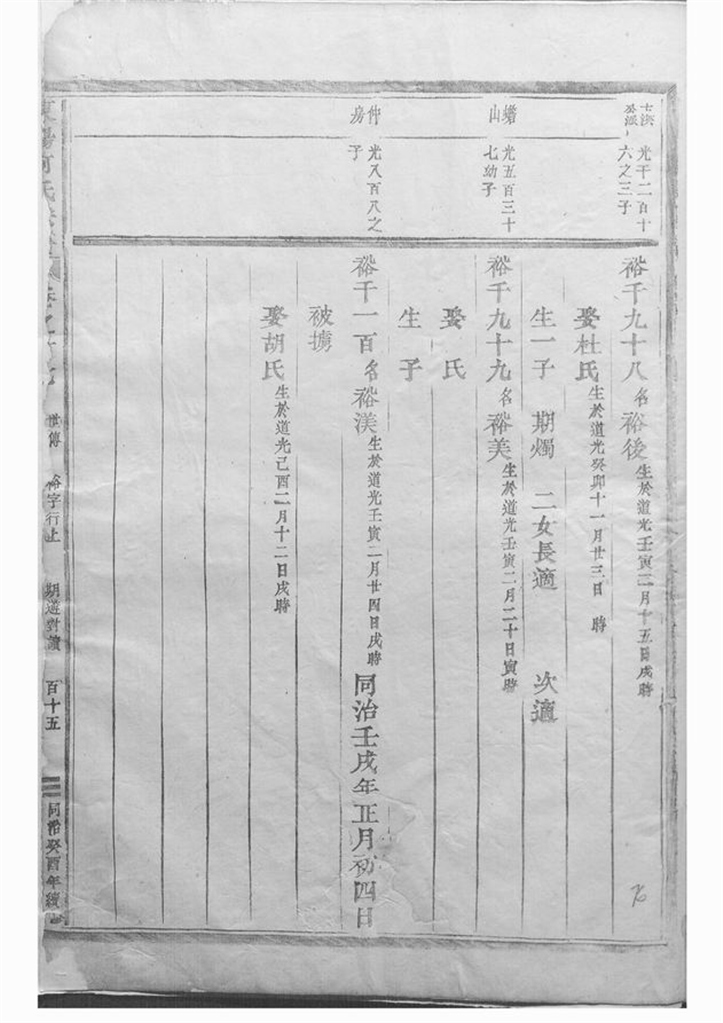 光千二百十
六之三子
裕千九十八名裕後生於道光壬寅三月十五日戌時
娶杜氏生於道光癸卯十一月廿三日 時
生一子 期燭 二女長適 次適
蟾山
光五百三十
七幼子
裕千九十九名裕美生於道光壬寅二月二十日寅時
娶 氏
生 子
仲房
光又百八之
子
裕千一百名裕渼生於道光壬寅二月廿四日戌時同治壬戌年正月初四日
被擄
娶胡氏生於道光己酉二月十二日戌時
世傳 裕字行上 期遊對讀 百十五 同治癸酉年續